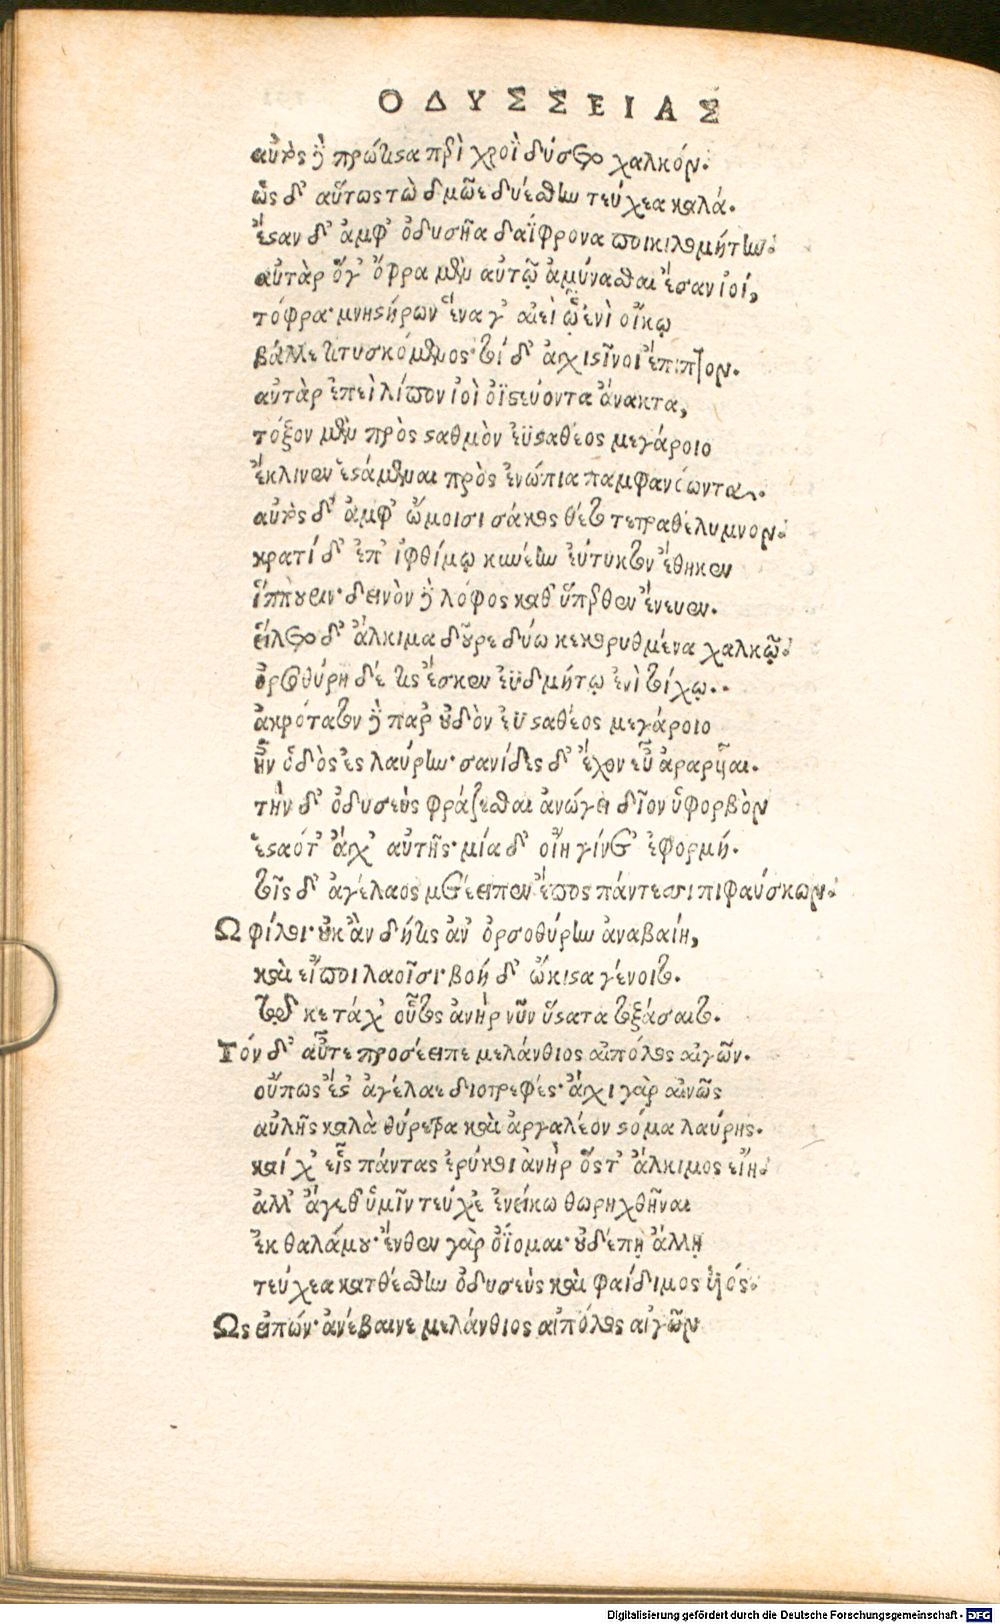 ΟΔΥΣΣΕΙΑΣ
αὐτὸς δὲ πρώτιστα περὶ χροῒ δύσετο χαλκόν.
ὣς δ' αὕτως τὼ δμῶε δυέσθην τεύχεα καλά.
ἔσταν δ' ἀμφ' ὀδυσῆα δαΐφρονα ποικιλομήτην.
αὐτὰρ ὅγ' ὄφρα μὲν αὐτῷ ἀμύνασθαι ἔσαν ἰοί,
τόφρα· μνηστήρων ἕνα γ' αἰεὶ ᾧ ἐνὶ οἴκῳ
βάλλε τιτυσκόμενος· τοὶ δ' ἀγχιστῖνοι ἔπιπτον.
αὐτὰρ ἐπεὶ λίπον ἰοὶ ὀϊστεύοντα ἄνακτα,
τόξον μὲν πρὸς σταθμὸν ἐϋσταθέος μεγάροιο
ἔκλινεν ἑστάμεναι πρὸς ἐνώπια παμφανόωντα.
αὐτὸς δ' ἀμφ' ὤμοισι σάκος θέτο τετραθέλυμνον.
κρατὶ δ' ἐπ' ἰφθίμῳ κυνέην εὔτυκτον ἔθηκεν
ἵππουριν· δεινὸν δὲ λόφος καθ' ὕπερθεν ἔνευεν.
εἵλετο δ' ἄλκιμα δοῦρε δύω κεκορυθμένα χαλκῷ.
ὀρσοθύρη δέ τις ἔσκεν ἐϋδμήτῳ ἐνὶ τοίχῳ.
ἀκρότατον δὲ παρ' οὐδὸν ἐϋσταθέος μεγάροιο
ἦν ὁδὸς ἐς λαύρην· σανίδες δ' ἔχον εὖ ἀραρῆαι.
τὴν δ' ὀδυσεὺς φράζεσθαι ἀνώγει δῖον ὑφορβὸν
ἑσταότ' ἄγχ' αὐτῆς· μία δ' οἴη γίνετ' ἐφορμή.
τοῖς δ' ἀγέλαος μετέειπεν ἔπος πάντεσσι πιφαύσκων.
Ω φίλοι· οὐκ ἂν δή τις ἀν' ὀρσοθύρην ἀναβαίη,
καὶ εἴποι λαοῖσι· βοὴ δ' ὤκιστα γένοιτο.
τῷ κε τάχ' οὗτος ἀνὴρ νῦν ὕστατα τοξάσαιτο.
Τόν δ' αὖτε προσέειπε μελάνθιος αἰπόλος αἰγῶν.
οὔπως ἔστ' ἀγέλαε διοτρεφές· ἄγχι γὰρ αἰνῶς
αὐλῆς καλὰ θύρετρα καὶ ἀργαλέον στόμα λαύρης.
καί χ' εἷς πάντας ἐρύκοι ἀνὴρ ὅστ' ἄλκιμος εἴη.
ἀλλ' ἄγεθ' ὑμῖν τεύχε' ἐνείκω θωρηχθῆναι
ἐκ θαλάμου· ἔνθεν γὰρ ὀΐομαι· οὐδέ πῃ ἄλλῃ
τεύχεα κατθέσθην ὀδυσεὺς καὶ φαίδιμος υἱός.
Ως εἰπών· ἀνέβαινε μελάνθιος αἰπόλος αἰγῶν
Digitalisierung gefördert durch die Deutsche Forschungsgemeinschaft - DFG